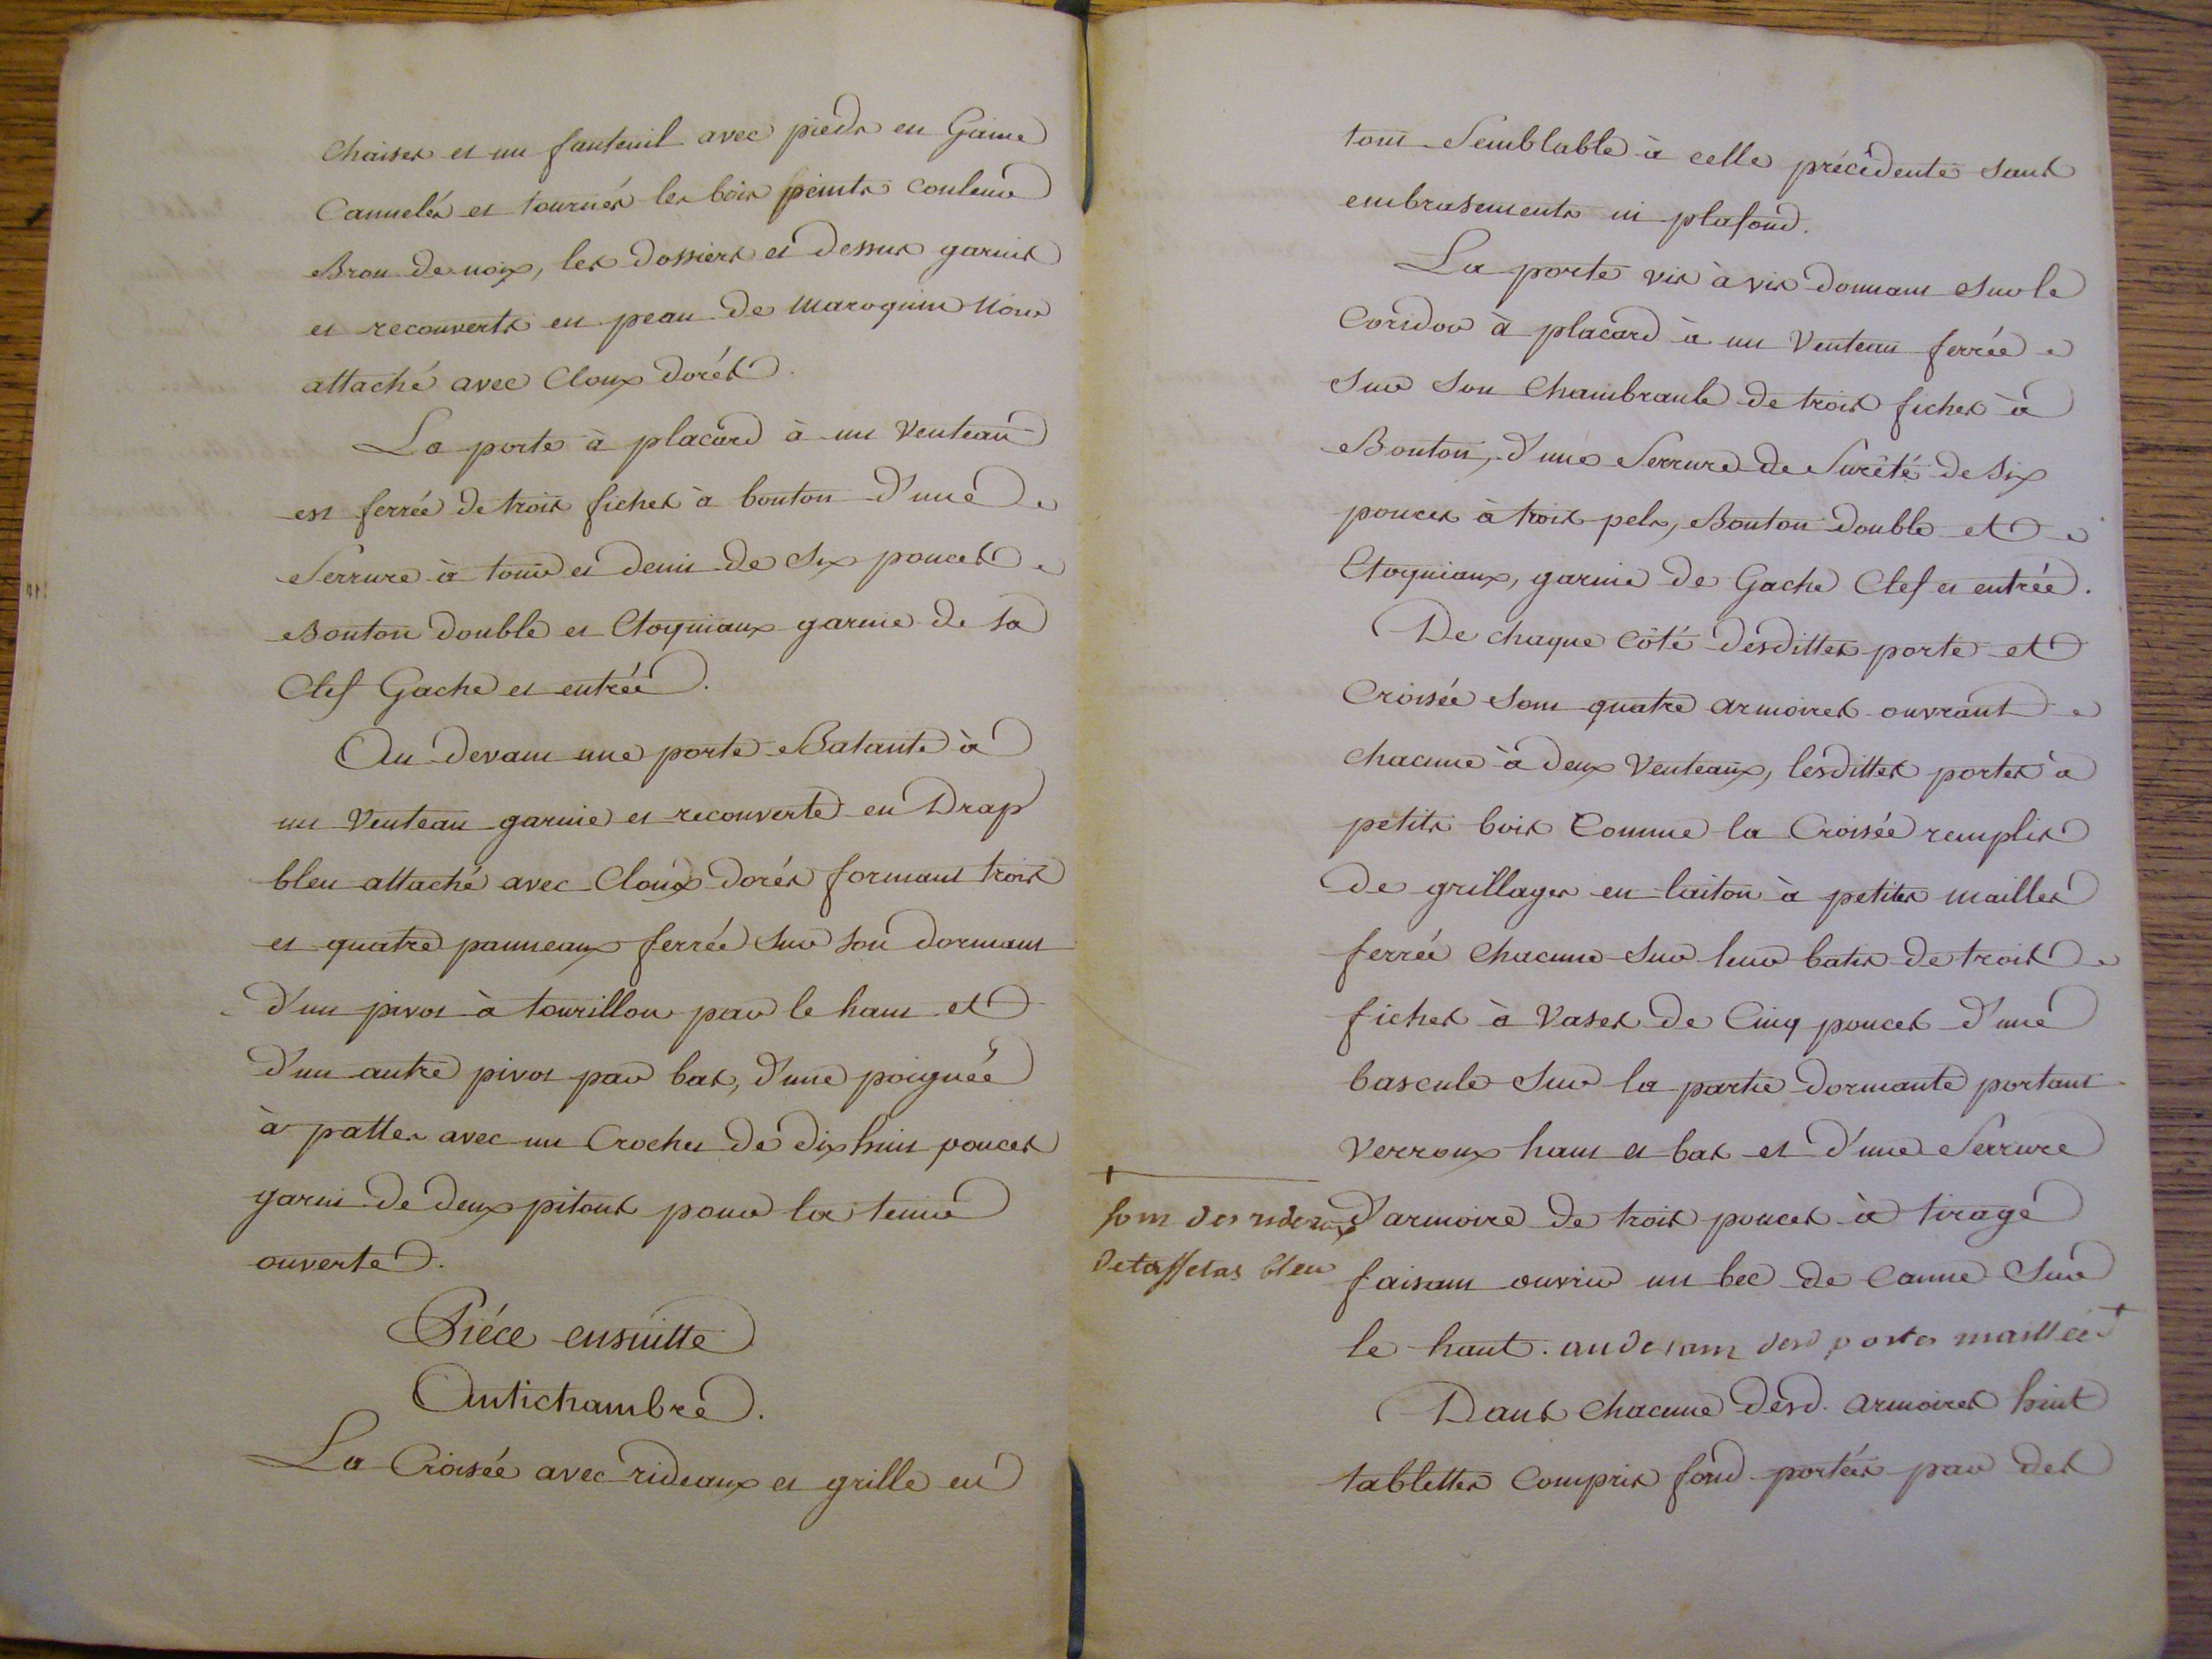 Chaises et un fauteuil avec pieds en Gaine
Cannelés et tournés les bois peints couleur
Brou de noix, les dossiers et dessus garnis
et recouverts en peau de Maroquin Noir
attaché avec Cloux dorés.
La porte à placard à un Venteau
est ferrée de trois fiches à bouton d'une
Serrure à tour et demi de Six pouces
Bouton double et Etoquiaux garnie de sa
Clef Gache et entrée.
Au devant une porte Batante à
un Venteau garnie et recouverte en Drap
bleu attaché avec Cloux dorés formant trois
et quatre panneaux ferrée sur son dormant
d'un pivot à tourillon par le haut et
d'un autre pivot par bas, d'une poignée
à pattes avec un Crochet de dix huit pouces
garni de deux pitons pour la tenir
ouverte.
Piéce ensuitte
Antichambre.
La Croisée avec rideaux et grille en
tout Semblable à celle précédente sans
embrasements ni plafond.
La porte vis à vis donnant sur le
Coridor à placard à un Venteau ferrée
sur son Chambranle de trois fiches à
Bouton, d'une Serrure de Sureté de six
pouces à trois pels, Bouton double et
Etoquiaux, garnie de Gache Clef et entrée.
De chaque côté desdittes porte et
Croisée sont quatre armoires ouvrant
chacune à deux Venteaux, lesdittes portes à
petits bois Comme la Croisée remplis
de grillages en laiton à petites mailles
ferrée chacune sur leur batis de trois
fiches à Vases de Cinq pouces d'une
bascule sur la partie dormante portant
Verroux haut et bas et d'une Serrure
d'armoire de trois pouces à tirage
faisant ouvrir un bec de Canne sur
le haut. au devant desd portes maillée +
+
sont des rideaux
de taffetas bleu
Dans chacune desd. armoires huit
tablettes Compris fond portées par des